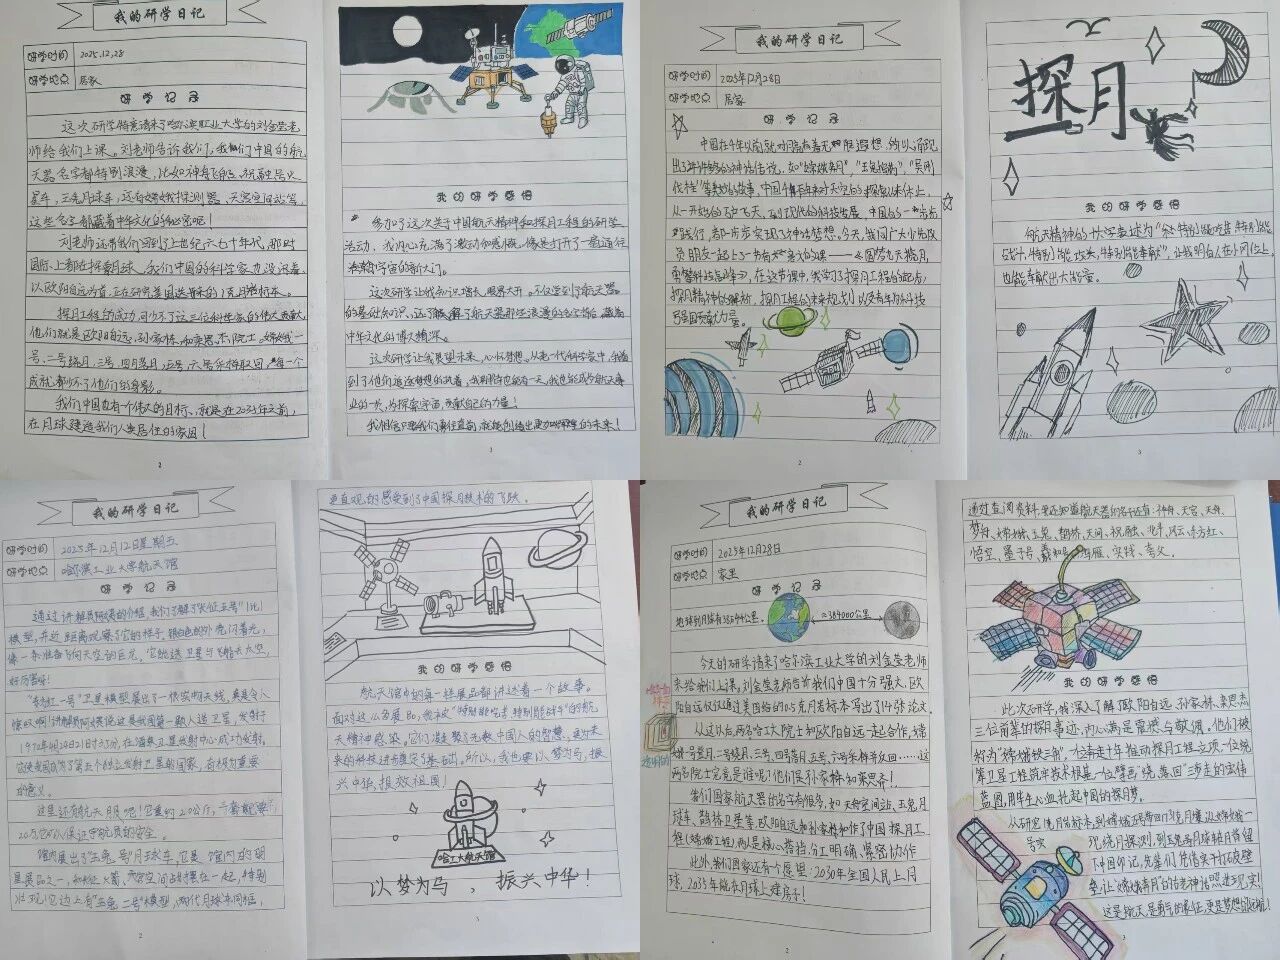 我的研学日记
研学时间 2025.12.28
研学地点 居家
研学记录
这次研学特意请来了哈尔滨工业大学的刘金莹老
师给我们上课。刘老师告诉我们,我们中国的航
天器名字都特别浪漫,比如神舟飞船、祝融号火
星车,玉兔月球车,还有嫦娥探测器,天宫空间站等,
这些名字都藏着中华文化的秘密呢!
刘老师还带我们回到了上世纪六七十年代,那时
国际上都在探索月球,我们中国的科学家也没闲着,
以欧阳自远为首,正在研究美国送来的1克月岩标本。
探月工程的成功,可少不了这三位科学家的伟大贡献,
他们就是欧阳自远,孙家栋,和栾恩杰院士。嫦娥一
号、二号绕月,三号、四号落月,五号、六号采样取回,每一个
成就都少不了他们的身影。
我们中国也有个伟大的目标,就是在2035年之前,
在月球建造我们人类居住的家园!
2
我的研学感悟
参加了这次关于中国航天精神和探月工程的研学
活动,我内心充满了激动和感慨,像是打开了一扇通往
浩瀚宇宙的新大门。
这次研学让我知识增长,眼界大开。不仅学到了航天器
的基础知识,还了解了航天器那些浪漫的名字背后,藏着
中华文化的博大精深。
这次研学让我展望未来,心怀梦想。从老一代科学家中,我看
到了他们追逐梦想的执着,我期待也能有一天,我也能成为航天事
业的一员,为探索宇宙,贡献自己的力量!
我相信只要我们勇往直前,就能创造出更加辉煌的未来!
3
我的研学日记
研学时间 2025年12月28日
研学地点 居家
研学记录
中国在千年以前,就对月亮有着无限遐想,所以涌现
出了许许多多的神话传说,如“嫦娥奔月”,“玉兔捣药”,“吴刚
伐桂”等美妙的故事,中国千百年来对天空的探索从未停止,
从一开始的万户飞天,到现代的科技发展,中国的一步步
践行,都一步步实现了神话梦想。今天,我同广大少先队
员朋友一起上了一节有意义的课——《圆梦九天揽月,
勇攀科技高峰》,在这节课中,我学习了探月工程的起点,
探月精神的解析,探月工程的未来规划以及青年为科技
强国贡献力量。
2
探月
我的研学感悟
航天精神的四大字表述为“特别能吃苦,特别能
战斗,特别能攻关,特别能奉献”,让我明白人在小岗位上,
也能奉献出大能量。
3
我的研学日记
研学时间 2025年12月12日星期五
研学地点 哈尔滨工业大学航天馆
研学记录
通过讲解员姐姐的介绍,我们了解了“长征五号”1比
模型,并近距离观察了它的样子,银白色的外壳闪着光,
像一条准备飞向天空的巨龙,它能送卫星与飞船去太空,
好厉害呀!
“东方红一号”卫星模型展出了一根实物天线,真是令人
惊叹啊!讲解员阿姨说这是我国第一颗人造卫星,发射于
1970年4月24日21时35分,在酒泉卫星发射中心成功发射。
它使我国成为了第五个独立发射卫星的国家,有极为重要
的意义。
这里还有航天服呢!它重约120公斤,一套就要
20万,它可以保证宇航员的安全。
馆内展出了“玉兔号”月球车,它是馆内的明
星展品之一,和长征火箭、天宫空间站摆在一起,特别
壮观!它边上有“玉兔二号”模型,两代月球车同框,
2
更直观的感受到了中国探月技术的飞跃。
我的研学感悟
航天馆中的每一样展品都讲述着一个故事。
面对这么多展品,我被“特别能吃苦,特别能战斗”的航
天精神感染。它们凝聚了无数中国人的智慧,更为未
来的科技进步奠定了基石。所以,我也要以梦为马,振
兴中华,报效祖国!
哈工大航天馆
以梦为马,振兴中华!
3
我的研学日记
研学时间 2025年12月28日
研学地点 家里
研学记录
地球到月球有38万44千公里 ≈384000公里
今天的研学请来了哈尔滨工业大学的刘金莹老师
来给我们上课,刘金莹老师告诉我们中国十分强大,欧
阳自远仅仅通过美国给的0.5克月岩标本写出了14张论文。
从这以后,两名哈工大院士和欧阳自远一起合作,嫦
娥一号登月、二号绕月、三号、四号落月、五号、六号采样并返回……这
两名院士究竟是谁呢?他们是孙家栋和栾恩杰!
我们国家航天器的名字有很多,如天和空间站、玉兔月
球车、鹊桥卫星等,欧阳自远和孙家栋和作了中国探月工
程(嫦娥工程),两人是核心搭档,分工明确、紧密协作
此外,我们国家还有个愿望:2030年全国人民上月
球,2035年能在月球上建房子!
2
通过查阅资料,我还知道航天器的名字还有:神舟、天宫、天舟、
梦舟、嫦娥、玉兔、鹊桥、天问、祝融、北斗、风云、东方红、
悟空、墨子号、羲和、鸿雁、实践、夸父。
我的研学感悟
此次研学,我深入了解欧阳自远、孙家栋、栾恩杰
三位前辈的探月事迹,内心满是震撼与敬佩。他们被
称为“嫦娥铁三角”,
蓝图,用毕生心血托起中国的探月梦。
这是航天,是勇气的象征,更是梦想的远航!
3